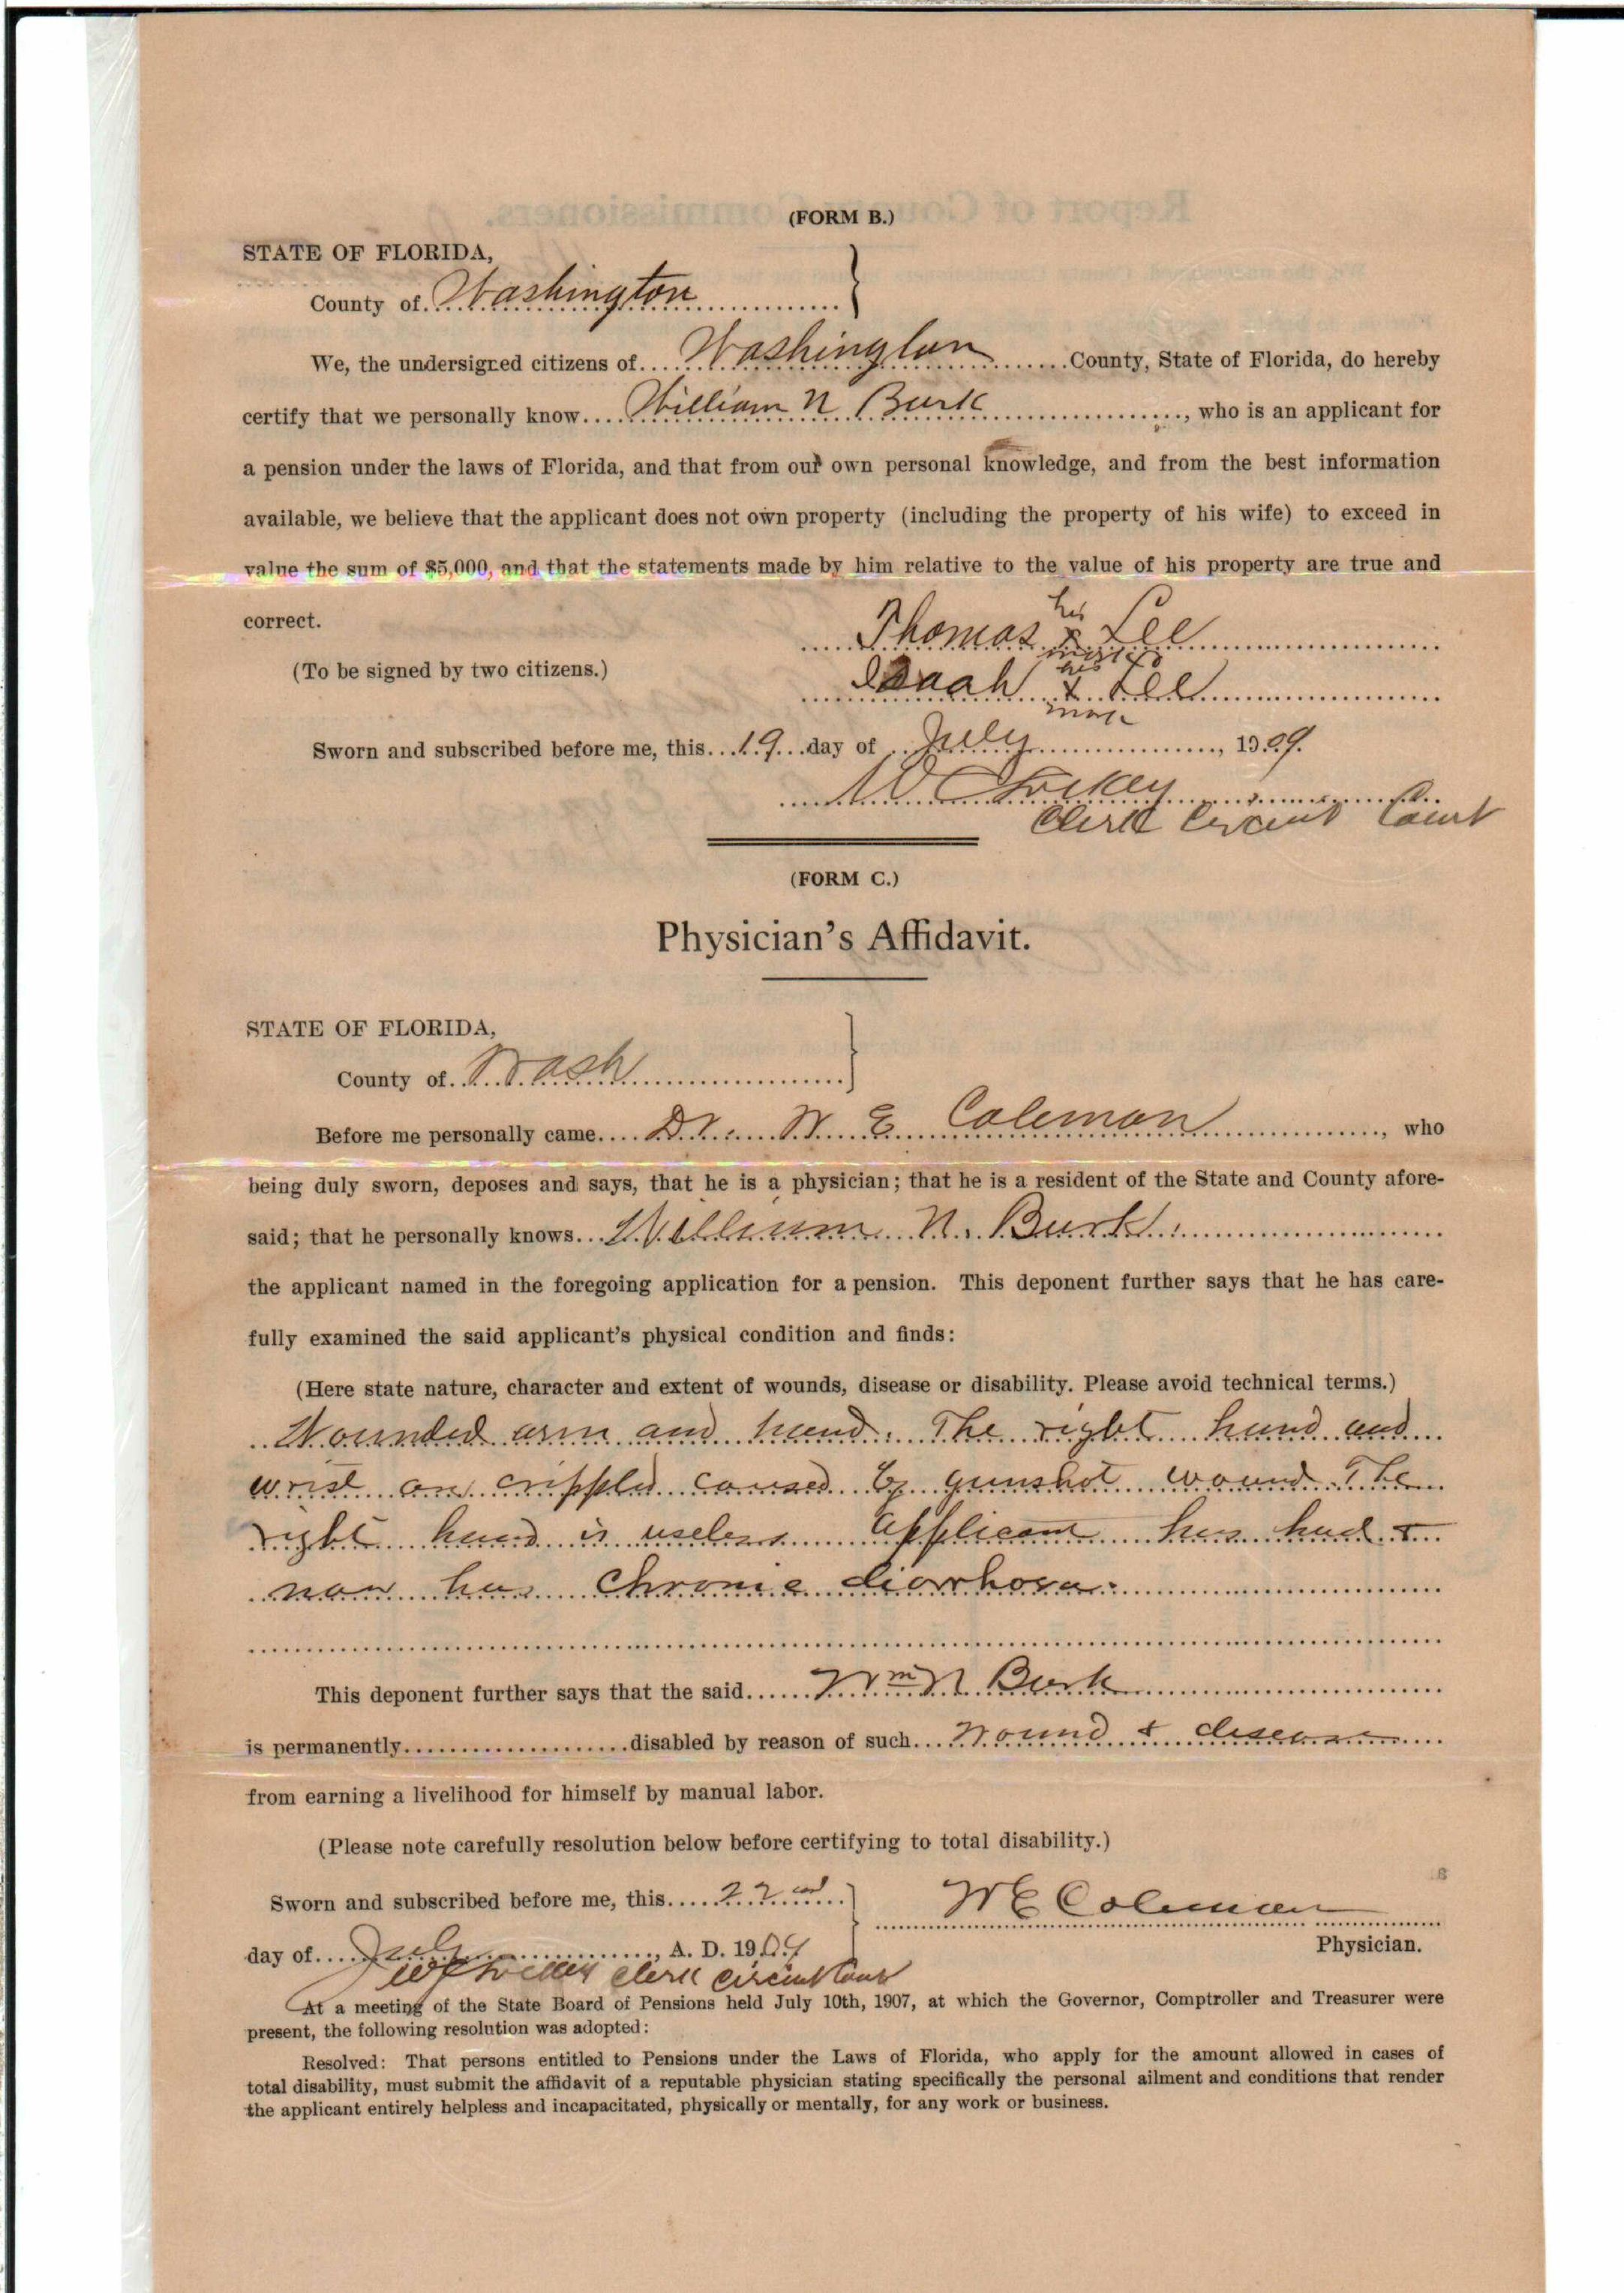 (FORM B.)
STATE OF FLORIDA,
County of Washington
We, the undersigned citizens of Washington County, State of Florida, do hereby
certify that we personally know William N Burk, who is an applicant for
a pension under the laws of Florida, and that from our own personal knowledge, and from the best information
available, we believe that the applicant does not own property (including the property of his wife) to exceed in
value the sum of $5,000, and that the statements made by him relative to the value of his property are true and
correct.
his
Thomas x Lee
mark
(To be signed by two citizens.)
his
x Lee
mark
Sworn and subscribed before me, this 19 day of July, 1909.
W C Lockey
Clerk Circuit Court
(FORM C.)
Physician's Affidavit.
STATE OF FLORIDA,
County of Wash
Before me personally came Dr. W E Coleman, who
being duly sworn, deposes and says, that he is a physician; that he is a resident of the State and County afore-
said; that he personally knows William N. Burk
the applicant named in the foregoing application for a pension. This deponent further says that he has care-
fully examined the said applicant's physical condition and finds:
(Here state nature, character and extent of wounds, disease or disability. Please avoid technical terms.)
Wounded arm and hand. The right hand and
wrist are crippled caused by gunshot wound The
right hand is useless Applicant has had &
now has Chronic diorrhoea.
This deponent further says that the said Wm N Burk
is permanently disabled by reason of such wound & disease
from earning a livelihood for himself by manual labor.
(Please note carefully resolution below before certifying to total disability.)
Sworn and subscribed before me, this 22nd
W E Coleman
day of July, A. D. 1909
Physician.
W C Lockey Clerk Circuit Court
At a meeting of the State Board of Pensions held July 10th, 1907, at which the Governor, Comptroller and Treasurer were
present, the following resolution was adopted:
Resolved: That persons entitled to Pensions under the Laws of Florida, who apply for the amount allowed in cases of
total disability, must submit the affidavit of a reputable physician stating specifically the personal ailment and conditions that render
the applicant entirely helpless and incapacitated, physically or mentally, for any work or business.